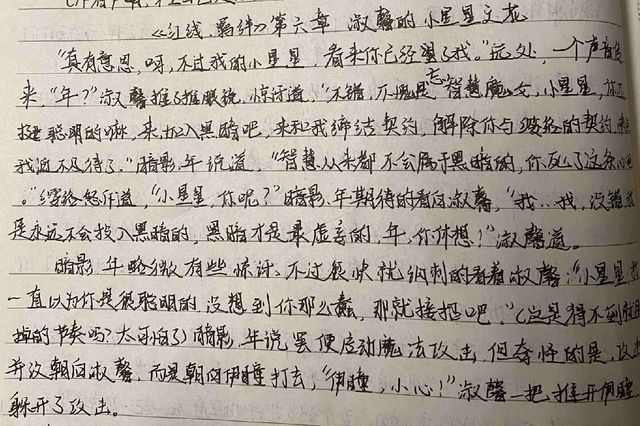 《红线、羁绊》第六章 淑馨的小星星文龙
“真有意思，呀，不过我的小星星，看来你已经忘了我。”远处，一个声音传
来，“年？”淑馨推了推眼镜，惊讶道，“不错，不愧是智慧魔女，小星星，你还
挺聪明的嘛，来加入黑暗吧，来和我缔结契约，解除你与的契约，
我迫不及待了。”暗影.年说道，“智慧从来都不会属于黑暗的，你死了这条心吧
。”怒斥道，“小星星，你呢？”暗影.年期待的看向淑馨，“我…我，没错，我
是永远不会投入黑暗的，黑暗才是最虚妄的，年，你休想！”淑馨道。
暗影.年略微有些惊讶，不过很快就讽刺的看着淑馨：“小星星，我
一直以为你是很聪明的，没想到你那么蠢，那就接招吧。”（这是得不到就毁
掉的节奏吗？太可怕了）暗影.年说罢便启动魔法攻击，但奇怪的是，攻击
并没朝向淑馨，而是朝向伊瞳打去，“伊瞳，小心！”淑馨一把推开伊瞳，
躲开了攻击。